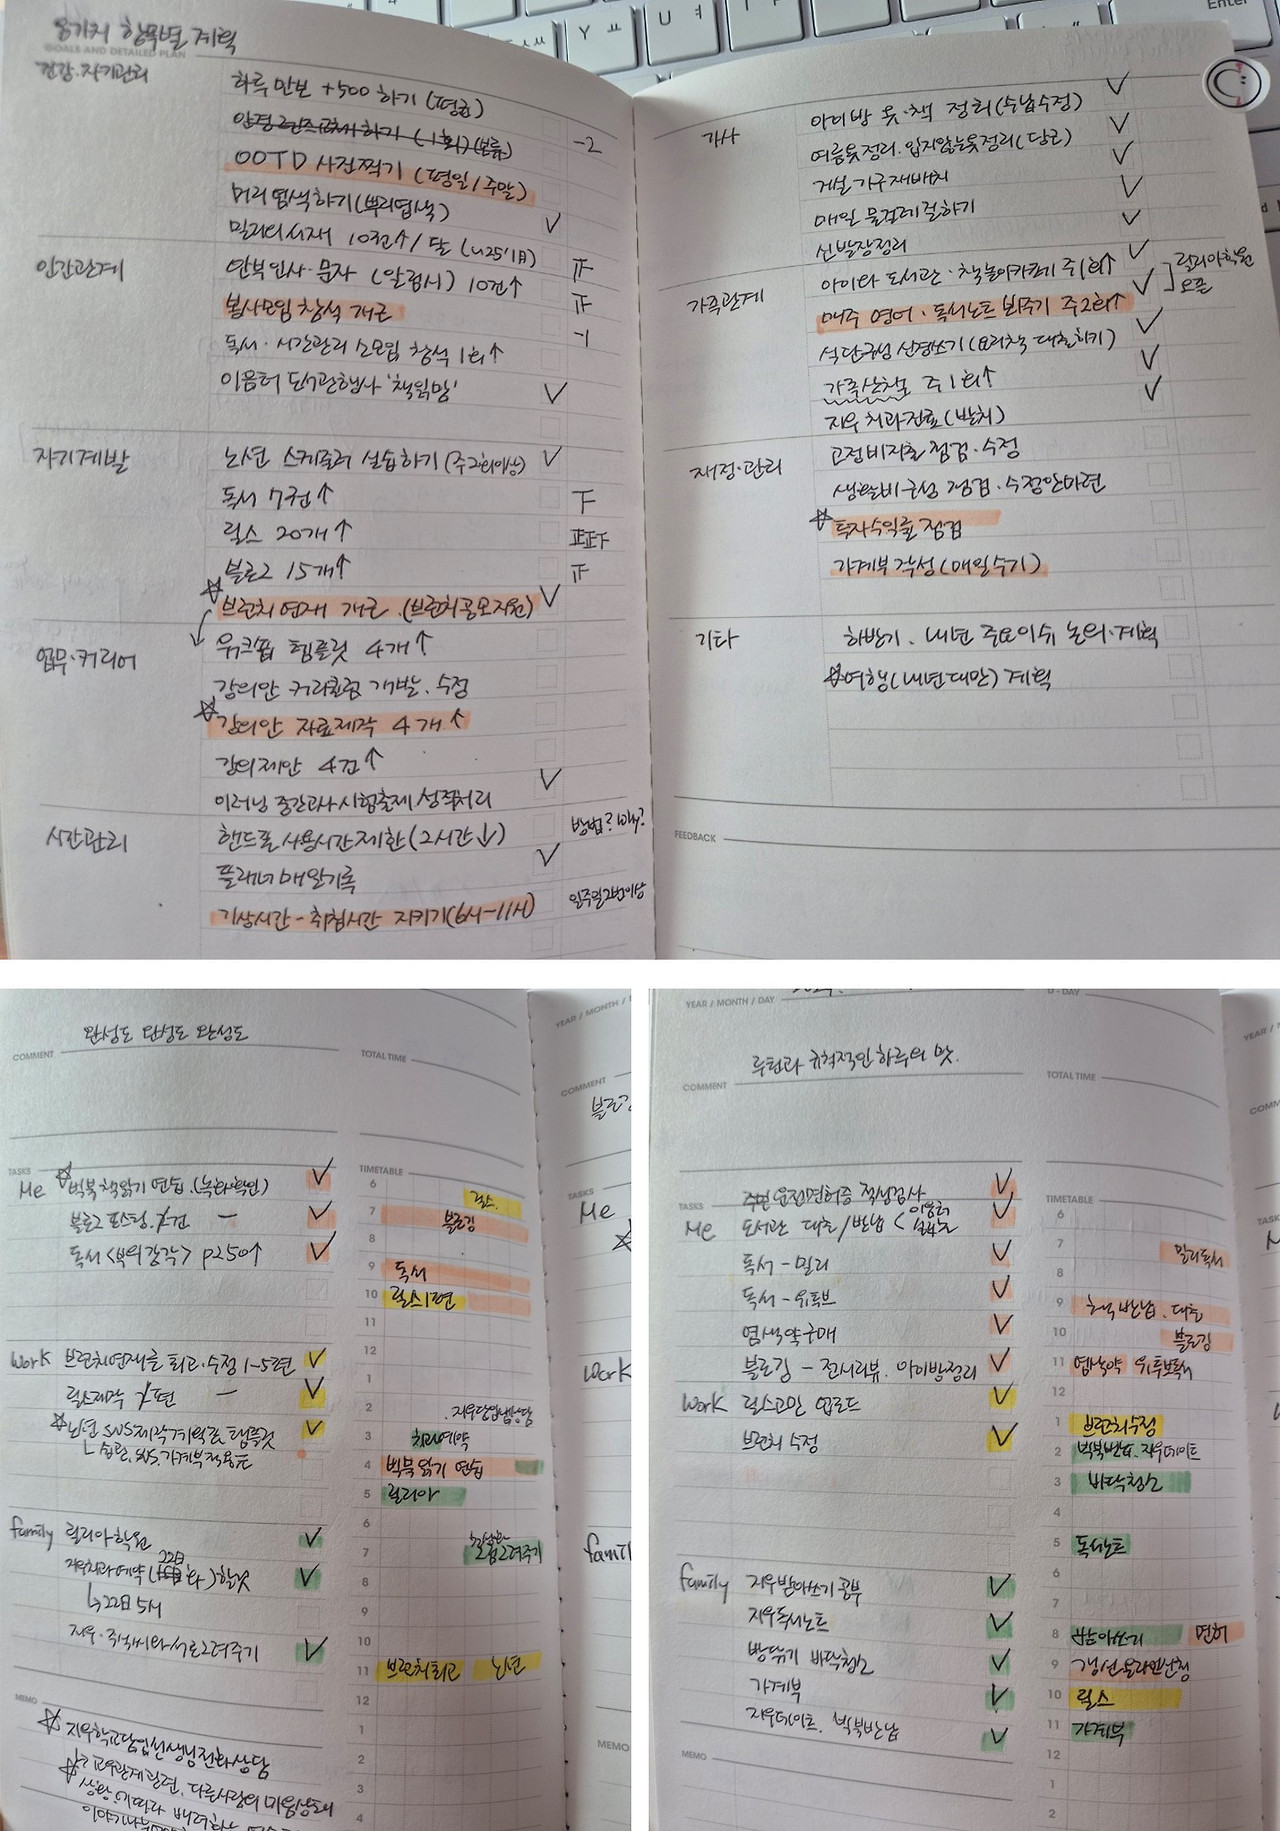 항목별 계획
GOALS AND DETAILED PLAN
건강·자기관리
하루 만보 +500 하기 (평균)
-2
OOTD 사진찍기 (평일/주말)
머리염색하기(뿌리염색)
밀리의서재 10권↑/달
인간관계
안부인사·문자 10건↑
봉사모임 참석 개근
-1
독서·시간관리 소모임 참석 1회↑
이음터 도서관행사 '책읽맘'
자기계발
노션 스케줄러 실습하기 (주2회이상)
독서 7권↑
릴스 20개↑
블로그 15개↑
브런치 연재 개근 (브런치공모지원)
업무·커리어
워크폼 템플릿 4개↑
강의안 커리큘럼 개발·수정
강의안 자료제작 4개↑
강의제안 4건↑
이러닝 중간고사 시험출제 성적처리
시간관리
핸드폰 사용시간 제한 (2시간↓)
방법? why?
플래너 매일기록
기상시간-취침시간 지키기(6시-11시)
일주일2번이상
가사
아이방 옷·책 정리(수납수정)
여름옷정리·입지않는옷정리(당근)
거실가구재배치
매일 물걸레질하기
신발장정리
가족관계
아이와 도서관·책놀이 주1회↑
릴리아학원
오픈
매주 영어·독서노트 봐주기 주2회↑
식단구성 신경쓰기(요리책 대출하기)
가족산책 주1회↑
지우 치과진료(발치)
재정·관리
고정비지출 점검·수정
생활비구성 점검·수정안마련
투자수익률 점검
가계부작성(매일수기)
기타
하반기·내년 주요이슈 논의·계획
여행(내년대만) 계획
FEEDBACK
Enter
완성도 완성도 완성도
COMMENT
TOTAL TIME
TASKS
Me
빅북 책읽기 연습
블로그 포스팅
독서 <부의감각> p250↑
Work
브런치연재글 퇴고·수정 1-5편
릴스제작
노션 SNS제작계획표 템플릿
family
릴리아학원
22일
지우치과예약
↳22日 5시
MEMO
지우학교담임선생님전화상담
TIMETABLE
6
릴스
7
블로깅
8
9
독서
10
릴스1편
11
12
1
2
지우담임쌤상담
3
치과예약
4
빅북 읽기 연습
5
릴리아
6
7
8
9
10
11
브런치퇴고
노션
12
1
2
3
4
YEAR / MONTH /
COMMENT
TASKS
Me
Work
famil
MEMO
YEAR / MONTH / DAY
D-DAY
루틴과 규칙적인 하루의 맛.
COMMENT
TOTAL TIME
TASKS
운전면허증 적성검사
Me
도서관 대출/반납 <
이음터
독서 - 밀리
독서 - 유튜브
염색약구매
블로깅 - 전시리뷰, 아이방정리
Work
릴스고민 업로드
브런치 수정
family
지우받아쓰기 공부
지우독서노트
방닦기 바닥청소
가계부
지우데이트, 빅북반납
MEMO
TIMETABLE
6
7
밀리독서
8
9
책 반납·대출
10
블로깅
11
염색약 유튜브독서
12
1
브런치수정
2
빅북반납·지우데이트
3
바닥청소
4
5
독서노트
6
7
8
받아쓰기
면허
9
갱신온라인신청
10
릴스
11
가계부
12
1
2